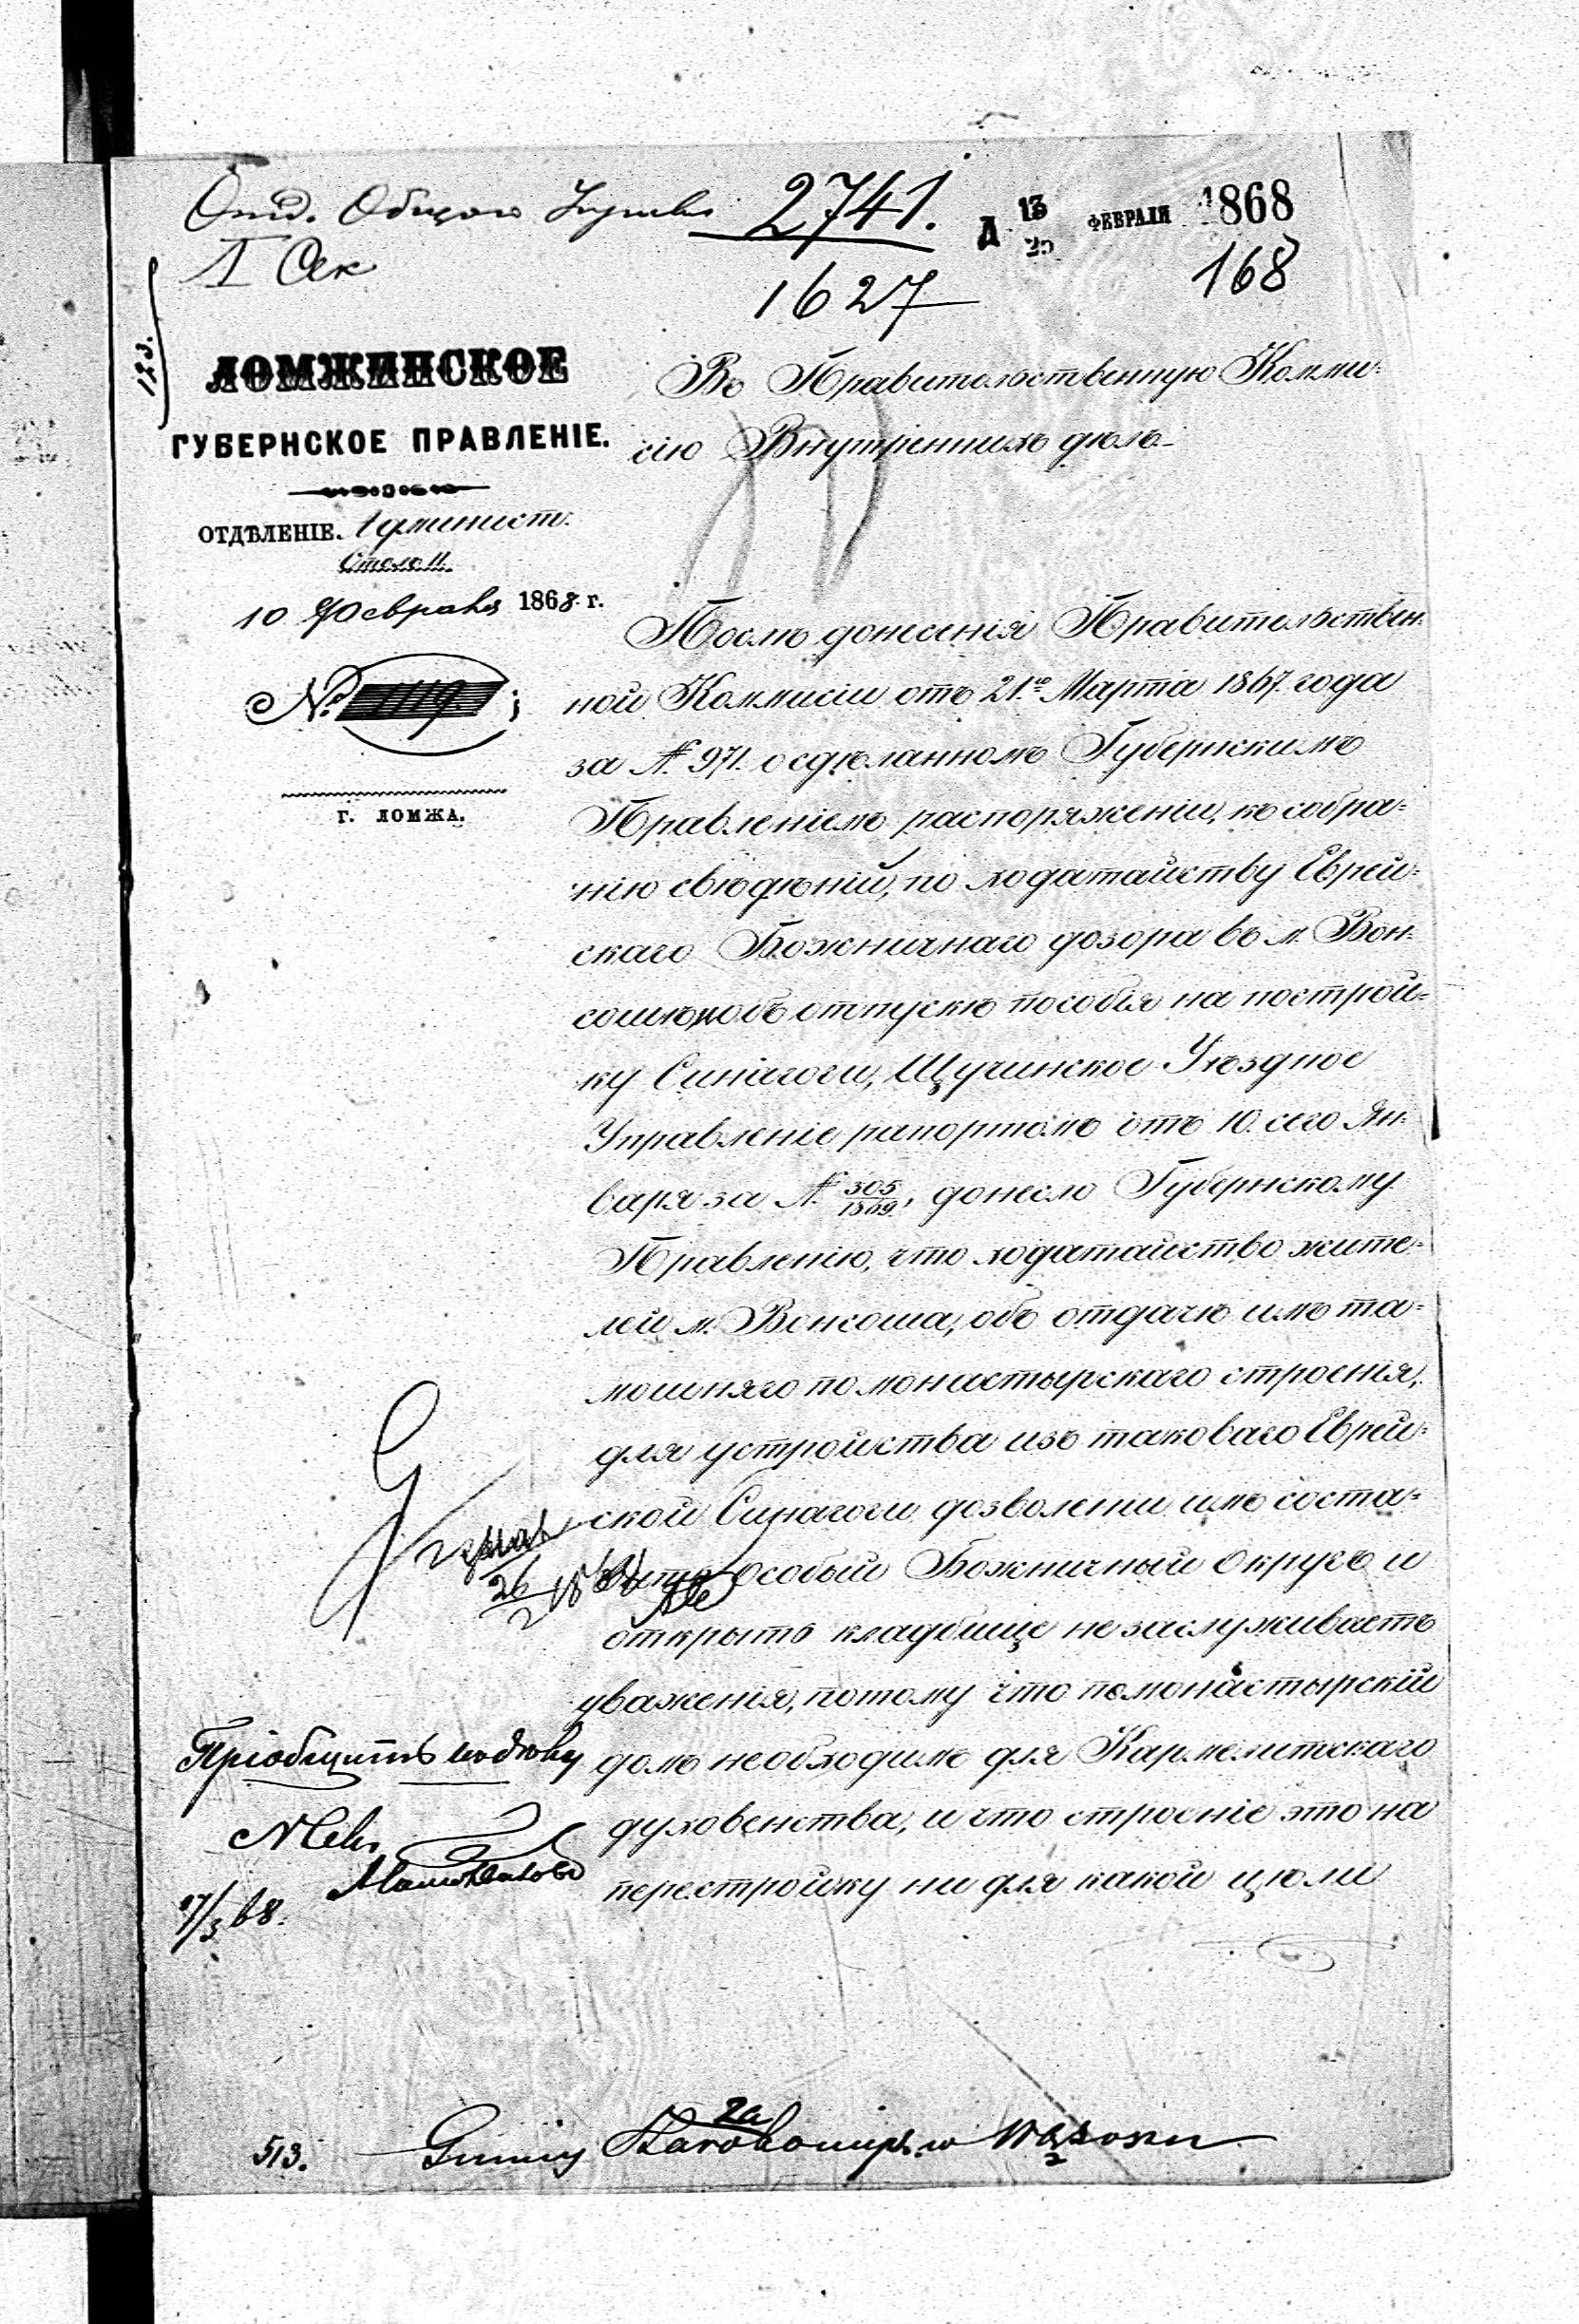 Отд. Общаго 2741. Д 13/25 ФЕВРАЛЯ 1868
I Сек 1627 168
123.
ЛОМЖИНСКОЕ
ГУБЕРНСКОЕ ПРАВЛЕНІЕ.
ОТДѢЛЕНІЕ. Админист.
Столъ II.
10 Февраля 1868 г.
№ 1119
г. ЛОМЖА.
Въ Правительственную Комми-
сію Внутреннихъ дѣлъ
Послѣ донесенія Правительствен-
ной Коммисіи отъ 21го Марта 1867 года
за № 971. о сдѣланномъ Губернскимъ
Правленіемъ распоряженіи, къ собра-
нію свѣдѣній, по ходатайству Еврей-
скаго Божничнаго дозора въ м. Вон-
сошѣ, объ отпускѣ пособія на построй-
ку Синагоги, Щучинское Уѣздное
Управленіе рапортомъ отъ 10. сего Ян-
варя за № 305/1869, донесло Губернскому
Правленію, что ходатайство жите-
лей м. Вонсоша, объ отдачѣ имъ та-
мошняго по монастырскаго строенія,
для устройства изъ таковаго Еврей-
ской Синагоги дозволеніи имъ соста-
вить особый Божничный округъ и
открыть кладбище не заслуживаетъ
уваженія, потому что помонастырскій
домъ необходимъ для Кармелитскаго
духовенства, и что строеніе это на
перестройку ни для какой цѣли
26/2 1868
Пріобщить къ дѣлу
17/3 68.
513. Gminy Starozakonnych w Wąsoszu
2a